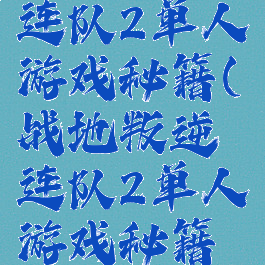 连队2单人
游戏秘籍(
战地叛逆
连队2单人
游戏秘籍